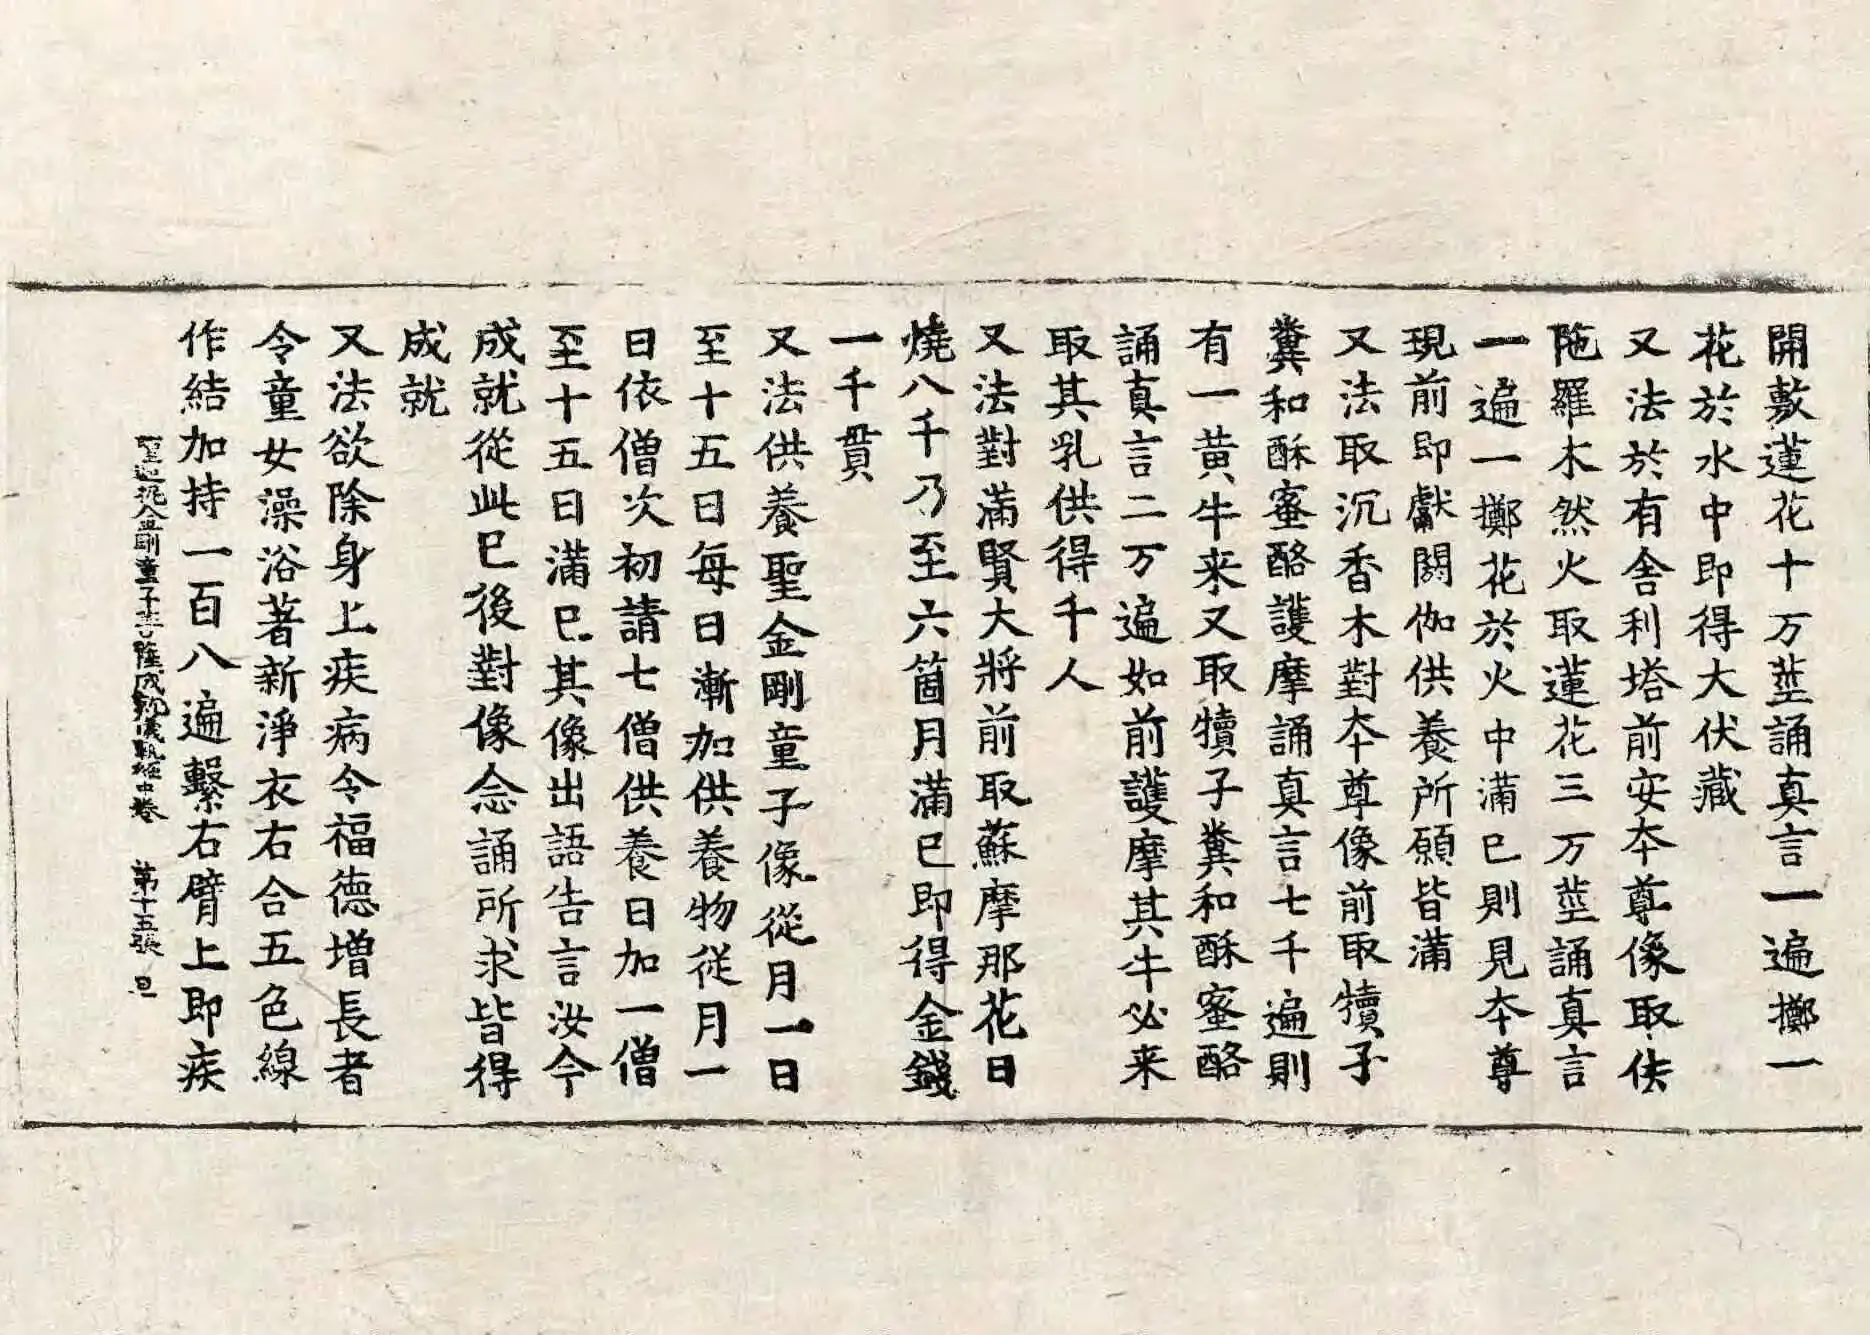 開敷蓮花十万莖誦真言一遍擲一
花於水中即得大伏藏
又法於有舎利塔前安夲尊像取佉
陁羅木然火取蓮花三万莖誦真言
一遍一擲花於火中滿已則見夲尊
現前即獻閼伽供養所願皆滿
又法取沉香木對夲尊像前取犢子
糞和酥蜜酪護摩誦真言七千遍則
有一黄牛来又取犢子糞和酥蜜酪
誦真言二万遍如前護摩其牛必来
取其乳供得千人
又法對滿賢大將前取蘇摩那花日
燒八千乃至六箇月滿已即得金錢
一千貫
又法供養聖金剛童子像從月一日
至十五日每日漸加供養物從月一
日依僧次初請七僧供養日加一僧
至十五日滿已其像出語告言汝今
成就從此已後對像念誦所求皆得
成就
又法欲除身上疾病令福德增長者
令童女澡浴著新淨衣右合五色線
作結加持一百八遍繫右臂上即疾
聖迦抳金剛童子菩薩成就儀軌經中卷 第十五張 旦